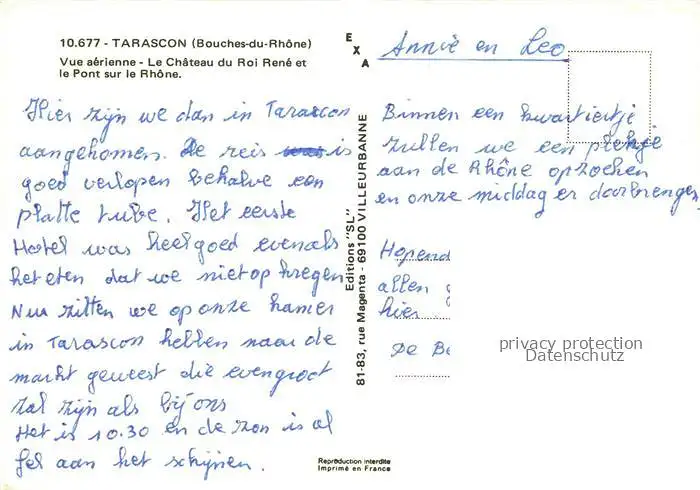 10.677 - TARASCON (Bouches-du-Rhône)
Vue aérienne - Le Château du Roi René et
le Pont sur le Rhône.
Hier zijn we dan in Tarascon
aangekomen. De reis is
goed verlopen behalve een
platte tube. Het eerste
Hotel was heel goed evenals
het eten dat we niet op kregen
Nu zitten we op onze kamer
in Tarascon hebben naar de
markt geweest die evengroot
zal zijn als bij ons
Het is 10.30 en de zon is al
fel aan het schijnen.
EXA
Editions "SL"
81-83, rue Magenta - 69100 VILLEURBANNE
Reproduction interdite
Imprimé en France
Annie en Leo
Binnen een kwartiertje
zullen we een plekje
aan de Rhône opzoeken
en onze middag er doorbrengen
Hopend
allen
hier
De Be
privacy protection
Datenschutz